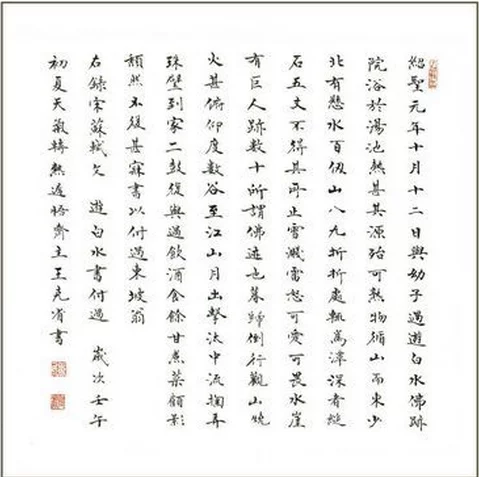 紹聖元年十月十二日與幼子過遊白水佛跡
院浴於湯池熱甚其源殆可熟物循山而東少
北有懸水百仞山八九折折處輒為潭深者縋
石五丈不得其所止雪濺雷怒可愛可畏水崖
有巨人跡數十所謂佛迹也暮歸倒行觀山燒
火甚俯仰度數谷至江山月出擊汰中流掬弄
珠璧到家二鼓復與過飲酒食餘甘煮菜顧影
頹然不復甚寐書以付過東坡翁
右錄宋蘇軾文 遊白水書付過 歲次壬午
初夏天氣轉熱悟齋主王克書